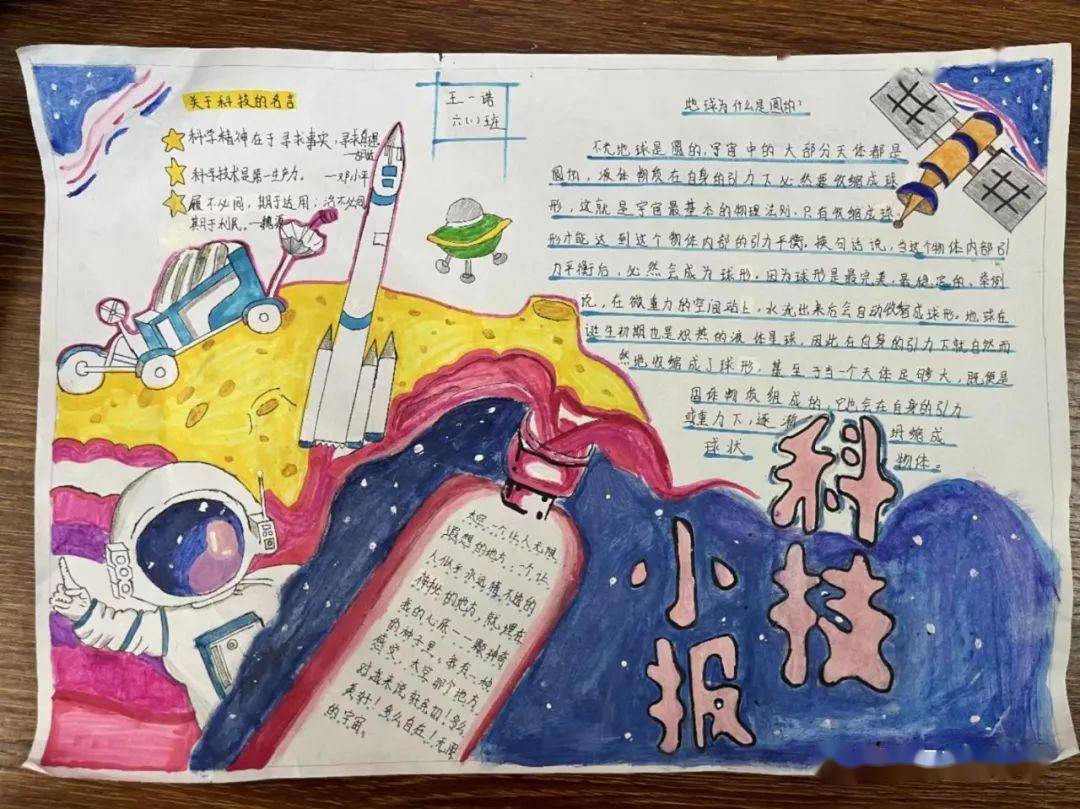 关于科技的名言
科学精神在于寻求事实，寻求真理
—胡适
科学技术是第一生产力。 —邓小平
履不必同，期于适用；治不必同，
期于利民。—魏源
王一诺
六(1)班
地球为什么是圆的?
不光地球是圆的，宇宙中的大部分天体都是
圆的，液体物质在自身的引力下必然要收缩成球
形，这就是宇宙最基本的物理法则，只有收缩成球
形才能达到这个物体内部的引力平衡。换句话说，当这个物体内部引
力平衡后，必然会成为球形。因为球形是最完美，最稳定的。举例
说，在微重力的空间站上，水流出来后会自动收缩成球形。地球在
诞生初期也是炽热的液体星球，因此在自身的引力下就自然而
然地收缩成了球形，甚至于当一个天体足够大，既使是
固体物质组成的，它也会在自身的引力
或重力下，逐渐 坍缩成
球状 物体。
太空，一个让人无限
遐想的地方，一个让
人似乎永远猜不透的
神秘的地方，就埋在
我的心底——一颗神奇
的种子里。我有一种
感觉，太空那个地方
对我来说好亲切！多么
美好！多么自在！无限
的宇宙。
科技
小报